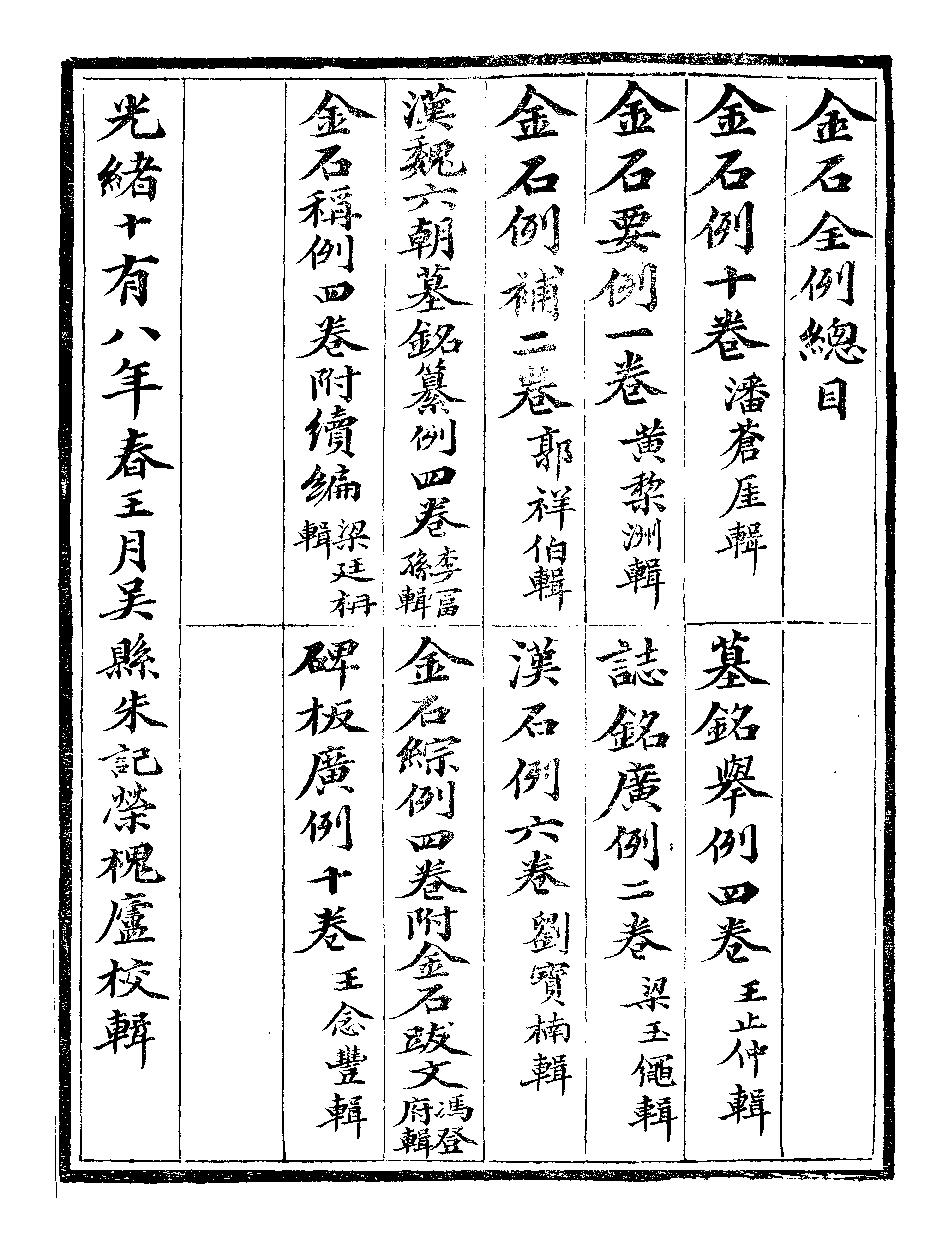 金石全例總目
金石例十卷 潘蒼厓輯
墓銘舉例四卷 王止仲輯
金石要例一卷 黄棃洲輯
誌銘廣例二卷 梁玉繩輯
金石例補二卷 郭祥伯輯
漢石例六卷 劉寶楠輯
漢魏六朝墓銘纂例四卷 李富孫輯
金石綜例四卷附金石跋文 馮登府輯
金石稱例四卷附續編 梁廷枏輯
碑板廣例十卷 王念豐輯
光緒十有八年春王月吴縣朱記榮槐廬校輯